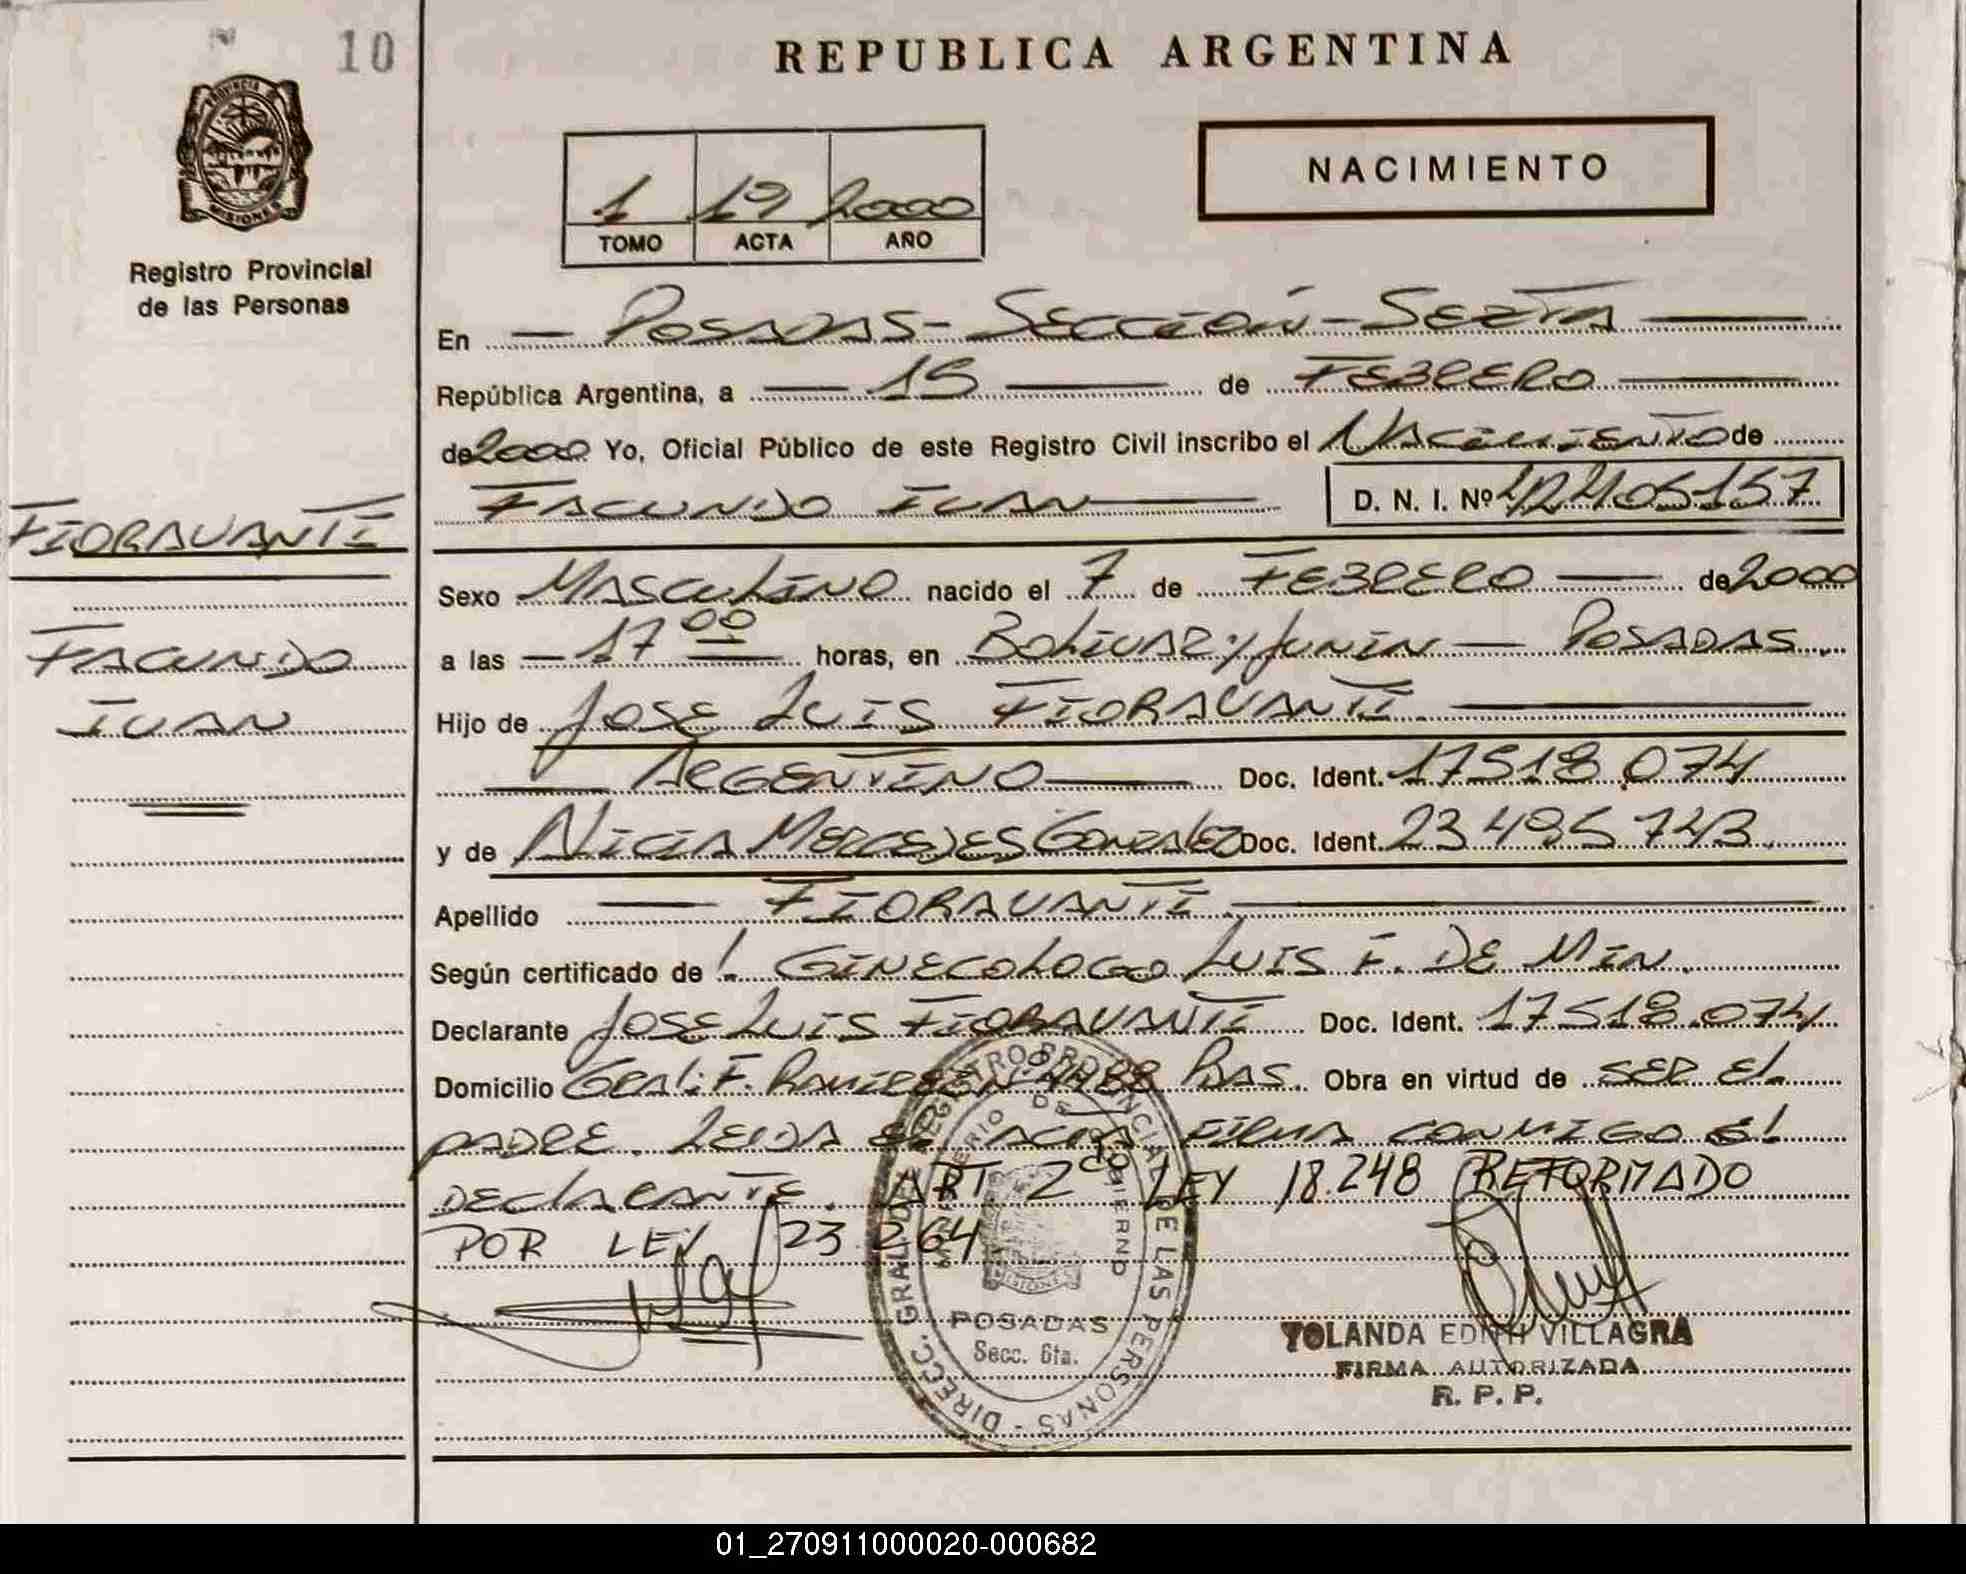 10
REPUBLICA ARGENTINA
PROVINCIA DE
MISIONES
Registro Provincial
de las Personas
1 19 2000
TOMO ACTA AÑO
NACIMIENTO
En POSADAS - SECCIÓN - SEXTA
República Argentina, a 15 de FEBRERO
de 2000 Yo, Oficial Público de este Registro Civil inscribo el NACIMIENTO de
FACUNDO IVAN D. N. I. Nº 42405157
FIORAVANTI
FACUNDO
IVAN
Sexo MASCULINO nacido el 7 de FEBRERO de 2000
a las 17 00 horas, en BOLIVAR y JUNIN - POSADAS.
Hijo de JOSE LUIS FIORAVANTI
ARGENTINO Doc. Ident. 17518.074
y de MERCEDES GONZALEZ Doc. Ident. 23495743
Apellido FIORAVANTI
Según certificado de ! GINECOLOGO LUIS F. DE MIN.
Declarante JOSE LUIS FIORAVANTI Doc. Ident. 17518.074
Domicilio GRAL. F. Obra en virtud de SER EL
PADRE. LEIDA EL ACTA FIRMA CONMIGO EL
DECLARANTE. ART. 2do LEY 18.248 REFORMADO
POR LEY 23.264
DIRECC. GRAL. DEL REGISTRO PROVINCIAL DE LAS PERSONAS
MINISTERIO DE GOBIERNO
MISIONES
POSADAS
Secc. 6ta.
YOLANDA EDITH VILLAGRA
FIRMA AUTORIZADA
R. P. P.
01_270911000020-000682